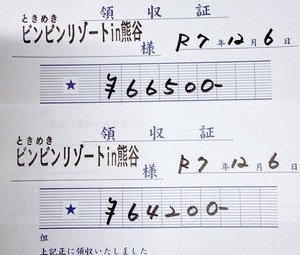 領収証
ときめき
ビンビンリゾートin熊谷
様 R7年12月6日
★ ¥66500-
領収証
ときめき
ビンビンリゾートin熊谷
様 R7年12月6日
★ ¥64200-
但
上記正に領収いたしました